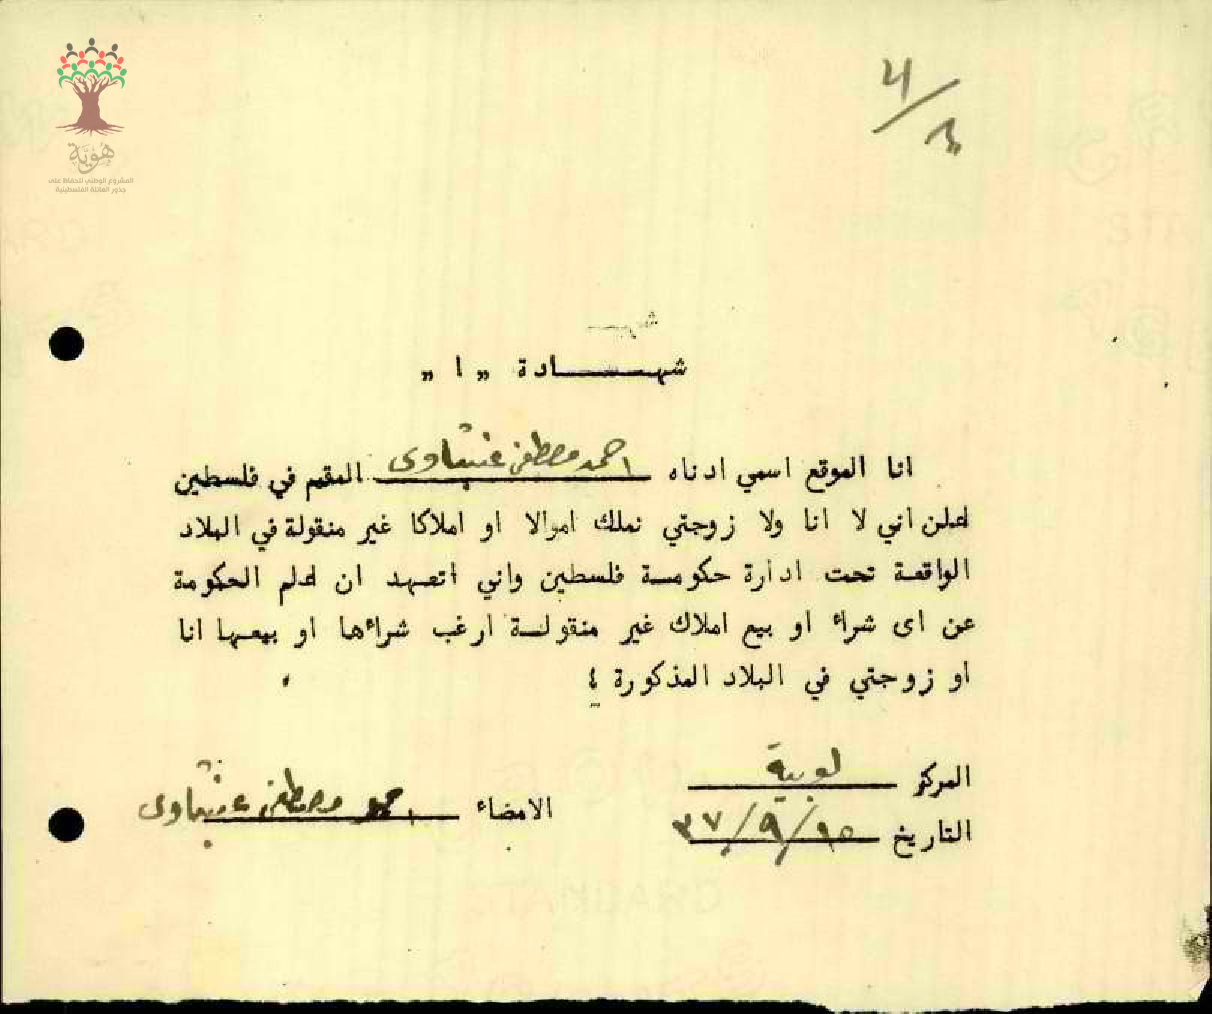 هوية
المشروع الوطني للحفاظ على
جذور العائلة الفلسطينية
شهـــــــادة „ ١ „
انا الموقع اسمي ادناه احمد مصطفى عنبتاوى المقيم في فلسطين
اعلن اني لا انا ولا زوجتي نملك اموالا او املاكا غير منقولة في البلاد
الواقعـة تحت ادارة حكومــة فلسطين واني اتعهد ان اعلم الحكومة
عن اى شراء او بيع املاك غير منقولــة ارغب شراءها او بيعها انا
او زوجتي في البلاد المذكورة
المركز لوبية
التاريخ ١٥/٩/٣٧
الامضاء احمد مصطفى عنبتاوى